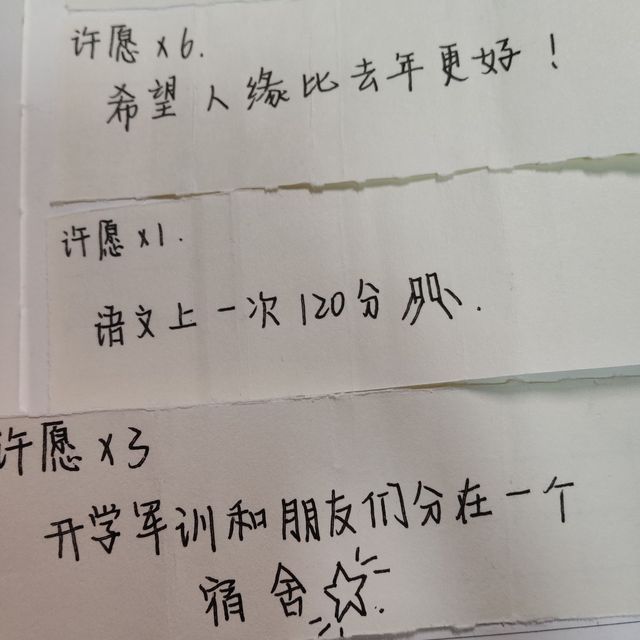 许愿 x6.
希望人缘比去年更好！
许愿 x1.
语文上一次120分
许愿 x3
开学军训和朋友们分在一个
宿舍